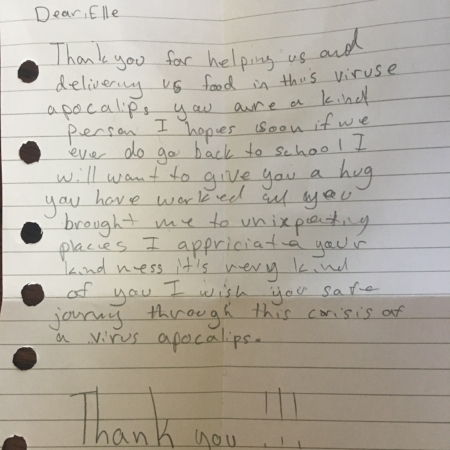 Dear, Elle
Thank you for helping us and
delivering us food in this viruse
apocalips you aure a kind
person I hopes soon if we
ever do go back to school I
will want to give you a hug
you have worked and you
brought me to unixpecting
places I appriciate your
kindness it's very kind
of you I wish you safe
journy through this corisis of
a virus apocalips.
Thank you !!!